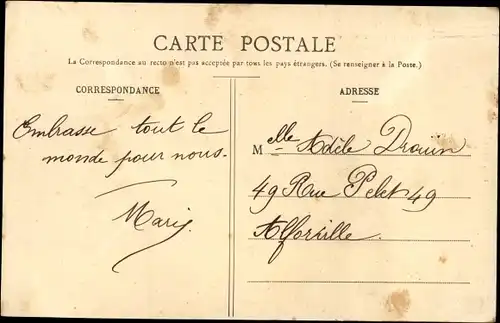 CARTE POSTALE
La Correspondance au recto n'est pas acceptée par tous les pays étrangers. (Se renseigner à la Poste.)
CORRESPONDANCE
Embrasse tout le
monde pour nous.
Marie
ADRESSE
Melle Adèle Drouin
49 Rue Pelet 49
Alforville.